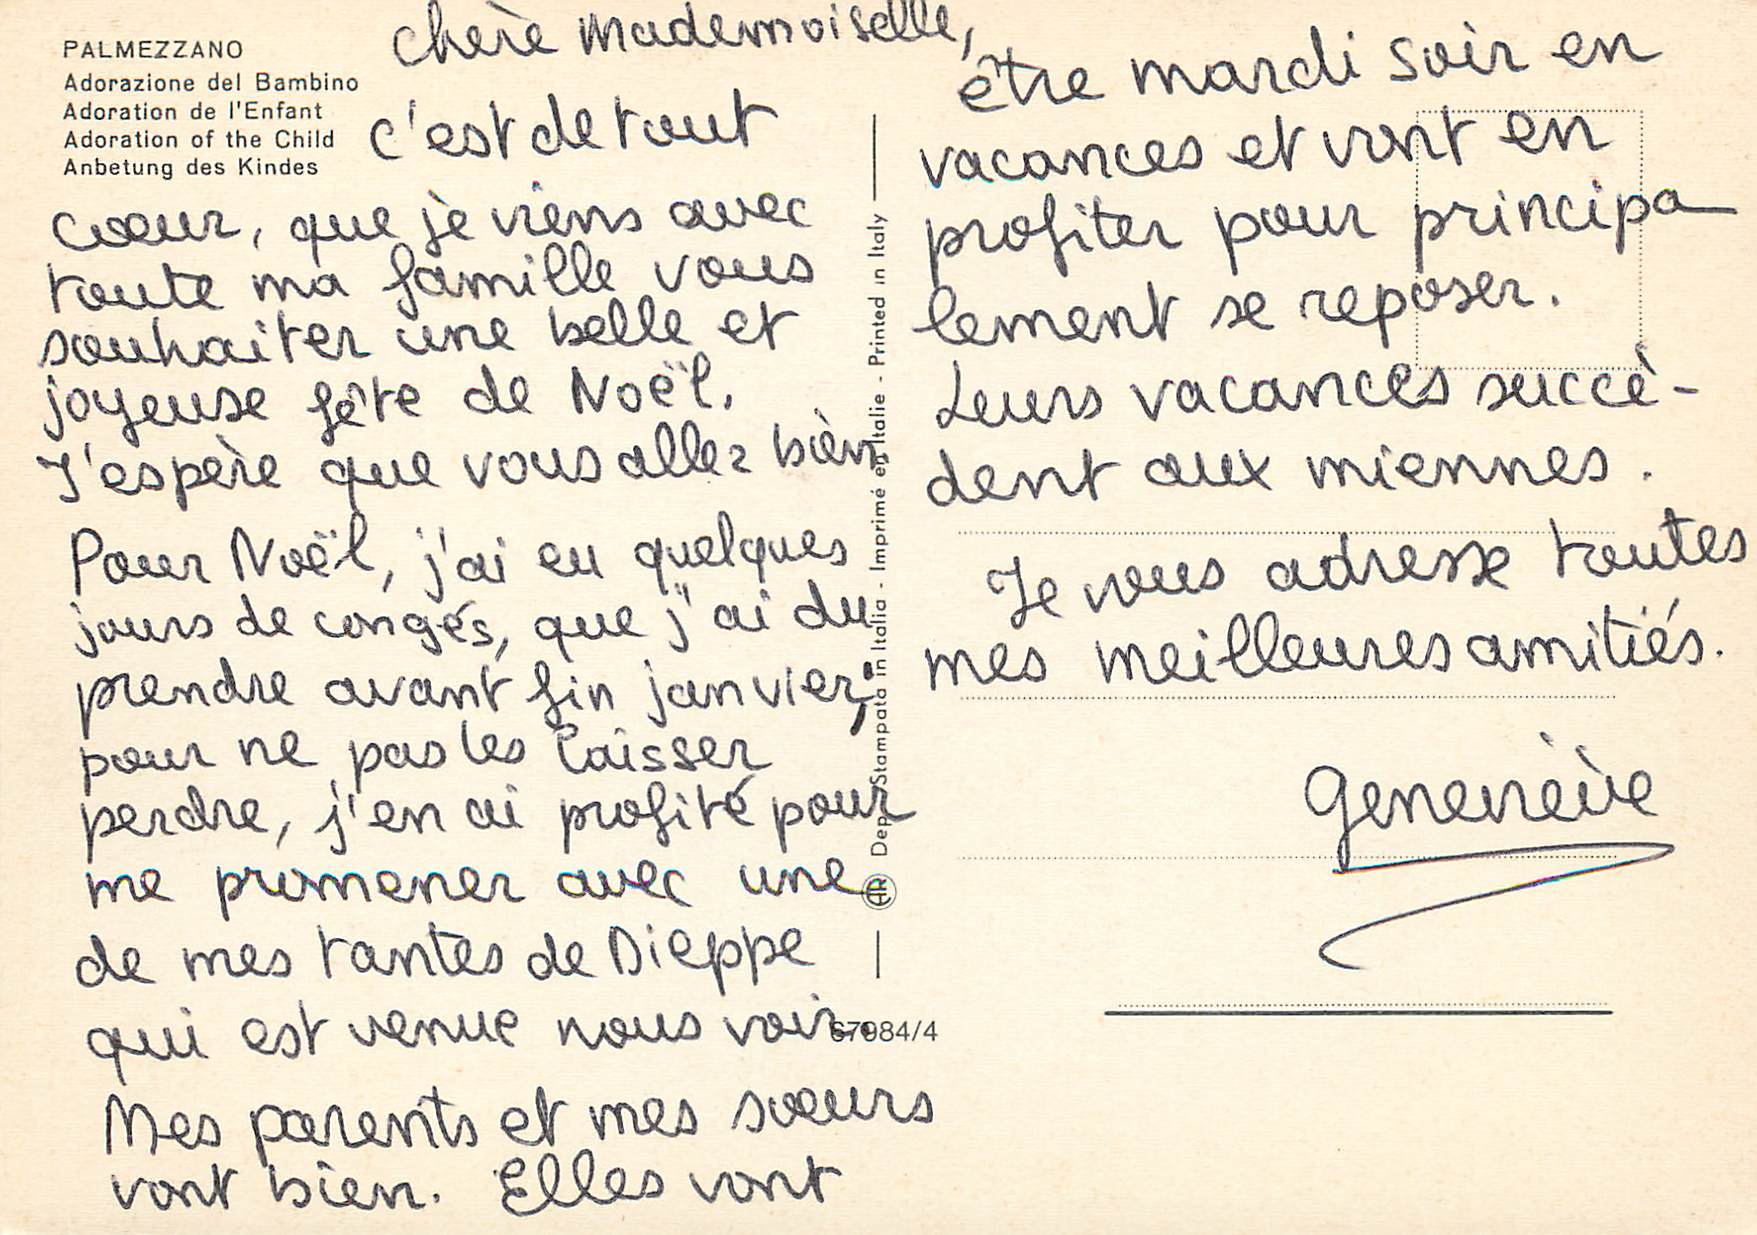 PALMEZZANO
Adorazione del Bambino
Adoration de l'Enfant
Adoration of the Child
Anbetung des Kindes
Chère Mademoiselle,
c'est de tout
cœur, que je viens avec
toute ma famille vous
souhaiter une belle et
joyeuse fête de Noël.
J'espère que vous allez bien
Pour Noël, j'ai eu quelques
jours de congés, que j'ai du
prendre avant fin janvier,
pour ne pas les laisser
perdre, j'en ai profité pour
me promener avec une
de mes tantes de Dieppe
qui est venue nous voir.
Mes parents et mes sœurs
vont bien. Elles vont
Dep. Stampata in Italia - Imprimé en Italie - Printed in Italy
AR
67984/4
être mardi soir en
vacances et vont en
profiter pour principa
lement se reposer.
Leurs vacances succè-
dent aux miennes.
Je vous adresse toutes
mes meilleures amitiés.
Geneviève